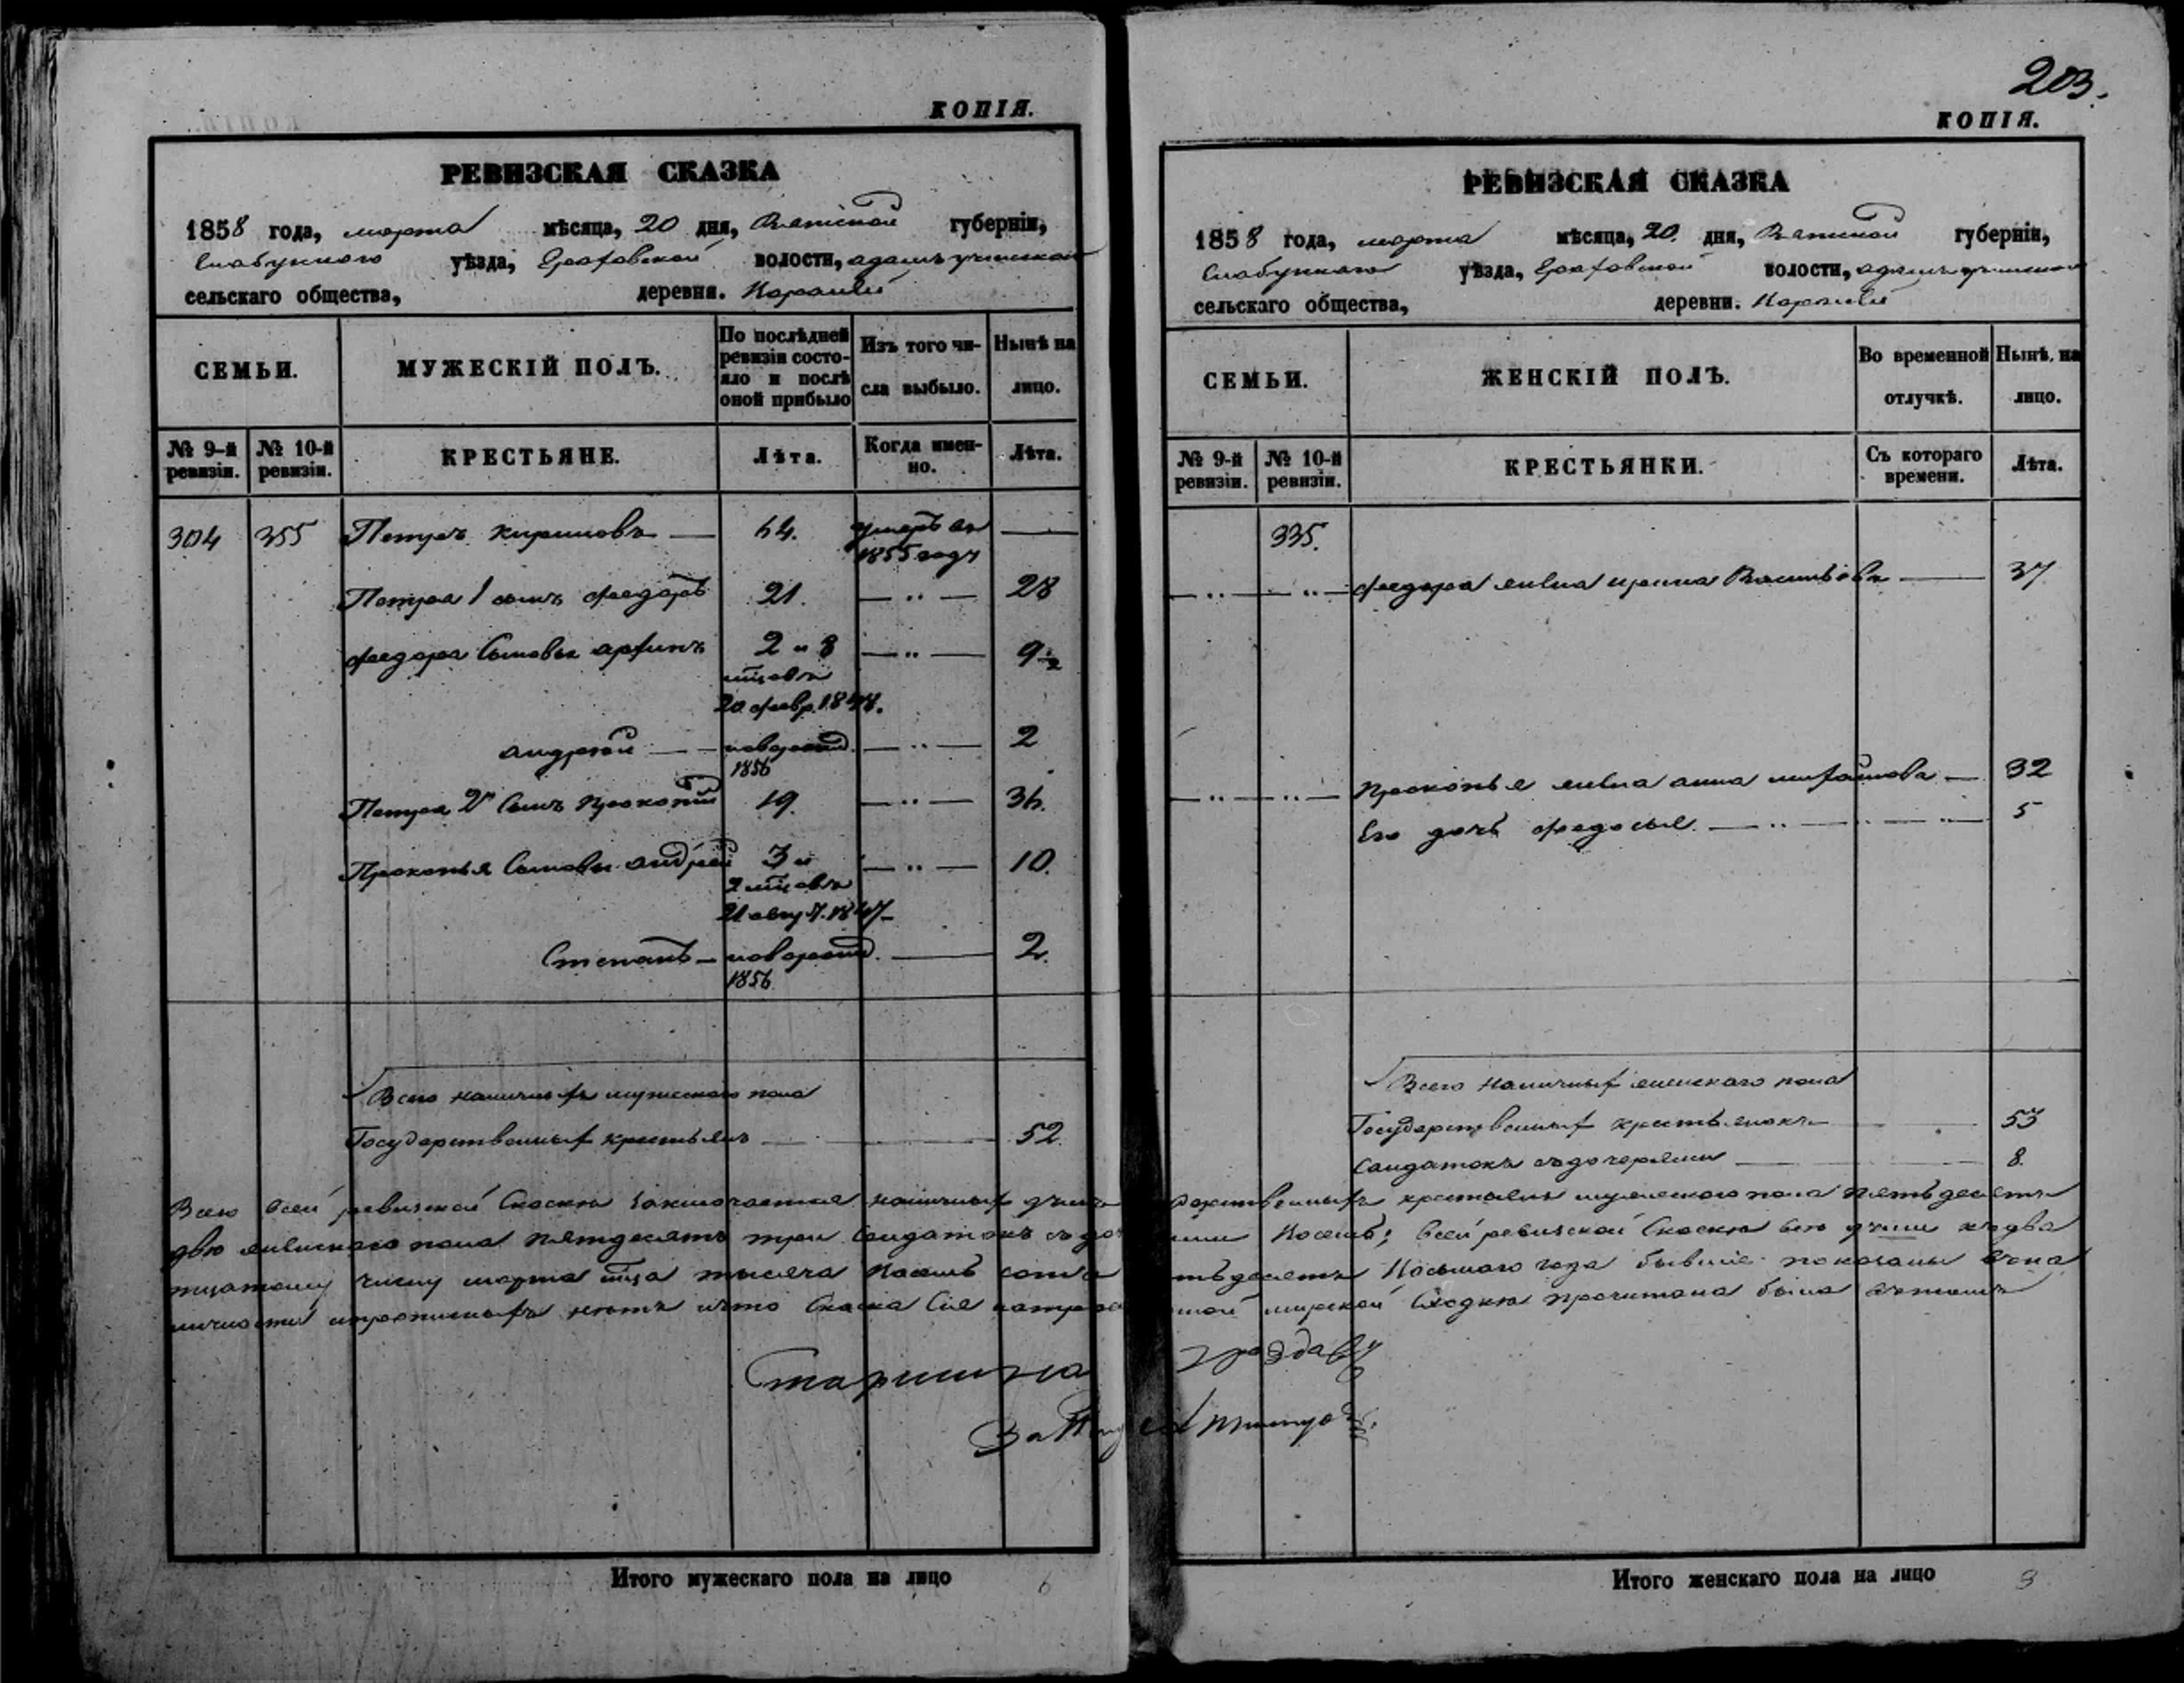 КОПІЯ.
РЕВИЗСКАЯ СКАЗКА
1858 года, марта мѣсяца, 20 дня, Вятской губерніи,
Елабужского уѣзда, Граховской волости,
сельскаго общества, деревни.
СЕМЬИ.
МУЖЕСКІЙ ПОЛЪ.
По послѣдней ревизіи состо-
яло и послѣ оной прибыло
Изъ того чи-
сла выбыло.
Нынѣ на
лицо.
№ 9-й ревизіи.
№ 10-й ревизіи.
КРЕСТЬЯНЕ.
Лѣта.
Когда имен-
но.
Лѣта.
304 355 Петръ Кириловъ — 64. умеръ въ —
1855 году
Петра 1 сынъ Федоръ 21. — „ — 28
Федора Сыновья 2 и 8 — „ — 9 ½
мцовъ
20 февр. 1848.
Андрей — новорожд. — „ — 2
1856
Петра 2й Сынъ Прокопій 19. — „ — 36.
Прокопья Сыновья Андрей 3 и — „ — 10.
2 мцовъ
21 авгу. 1847
Степанъ — новорожд. — 2.
1856
Всего наличныхъ мужескаго пола
Государственныхъ крестьянъ — 52.
Итого мужескаго пола на лицо 6
203.
КОПІЯ.
РЕВИЗСКАЯ СКАЗКА
1858 года, марта мѣсяца, 20. дня, Вятской губерніи,
Елабужского уѣзда, Граховской волости,
сельскаго общества, деревни.
СЕМЬИ.
ЖЕНСКІЙ ПОЛЪ.
Во временной
отлучкѣ.
Нынѣ на
лицо.
№ 9-й ревизіи.
№ 10-й ревизіи.
КРЕСТЬЯНКИ.
Съ котораго
времени.
Лѣта.
335.
— „ — „ — Федора жена Ирина Васильева — 37
— „ — „ — Прокопья жена Анна — 32
Его дочь Федосья. — „ — „ — 5
Всего наличныхъ женскаго пола
Государственныхъ крестьянокъ — 53
Солдатокъ съ дочерями — 8.
Всего всей ревизской Сказкѣ заключается наличныхъ государственныхъ крестьянъ мужескаго пола пятьдесятъ
двѣ женскаго пола пятдесятъ три Солдатокъ съ дочерями Восемь; всей ревизской Сказкѣ всѣ души къ два
тцатому числу марта мца тысяча Восемь сотъ пятьдесятъ Восьмаго года бывшіе показаны
и прописныхъ нѣтъ и что Сказка Сія мирской Сходкѣ прочитана была въ томъ
Старшина
Итого женскаго пола на лицо 3